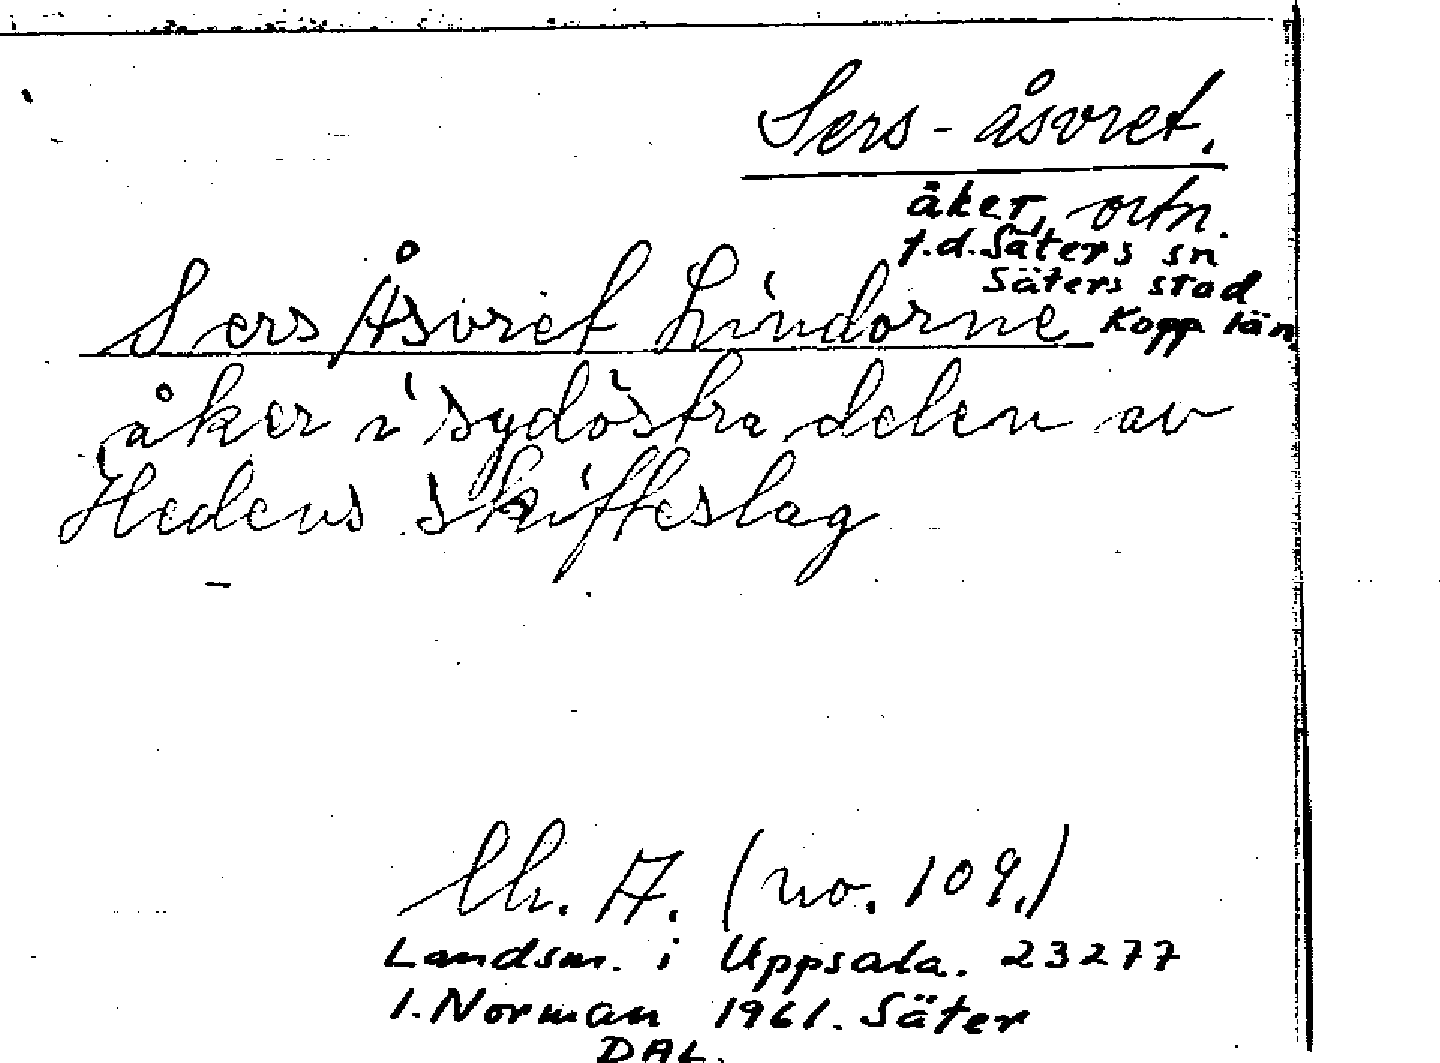 Sers-åsvret.
åker, ortn.
f.d. Säters sn
Säters stad
Kopp län
Sers Åsvret Lindorne
åker i sydöstra delen av
Hedens skifteslag
A. (no. 109.)
Landsm. i Uppsala. 23277
I. Norman 1961. Säter
DAL.